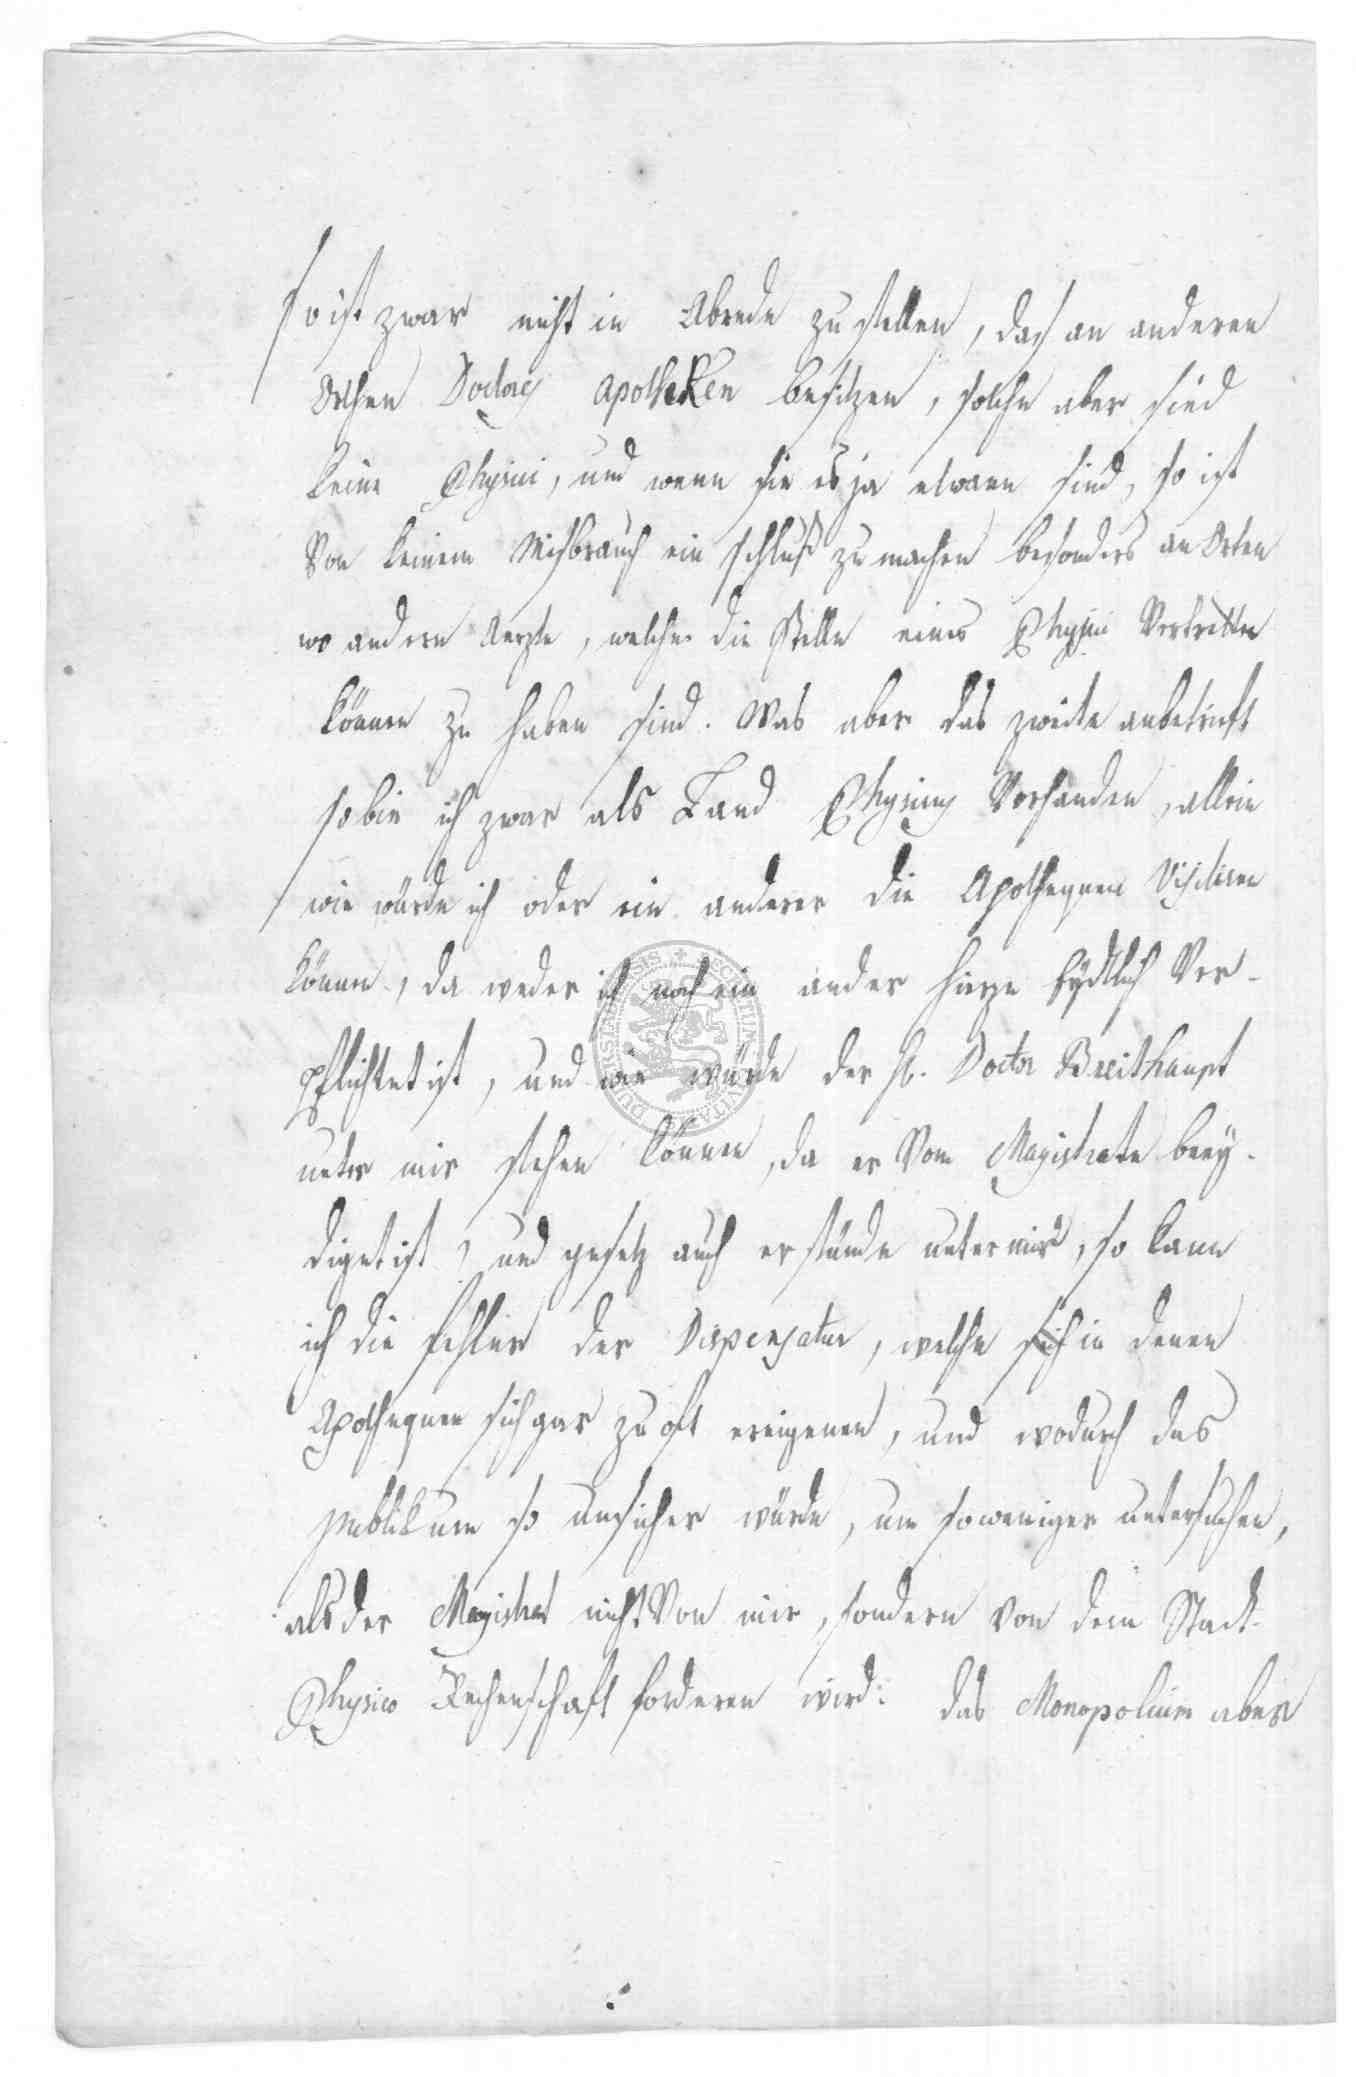 so ist zwar nicht in Abrede zu stellen, das an anderen
Orthen Doctores Apotheken besitzen, solche aber sind
keine Physici, und wenn sie es ja etwann sind, so ist
Von keinem Misbrauch ein schluß zu machen besonders an Orten
wo andern Aerzte, welche die Stelle eines Physici Vertretten
können zu haben sind. Was aber das zweite anbetrift
so bin ich zwar als Land Physicus Vorhanden, allein
wie würde ich oder ein anderer die Apothequen Visitiren
können, da weder ich noch ein ander hierzu Eydtlich Ver-
pflichtet ist, und wie würde der H. Doctor Breithaupt
unter mir stehen können, da er Vom Magistrate beey-
diget ist, und gesetz auch er stünde unter mir, so kann
ich die fehler der Dispensatur, welche sich in denen
Apothequen sich gar zu oft ereigenen, und wodurch das
publikum so unsicher würde, um so weniger untersuchen,
als der Magistrat nicht Von mir, sondern Von dem Stadt-
Physico Rechenschaft forderen wird: das Monopolium aber